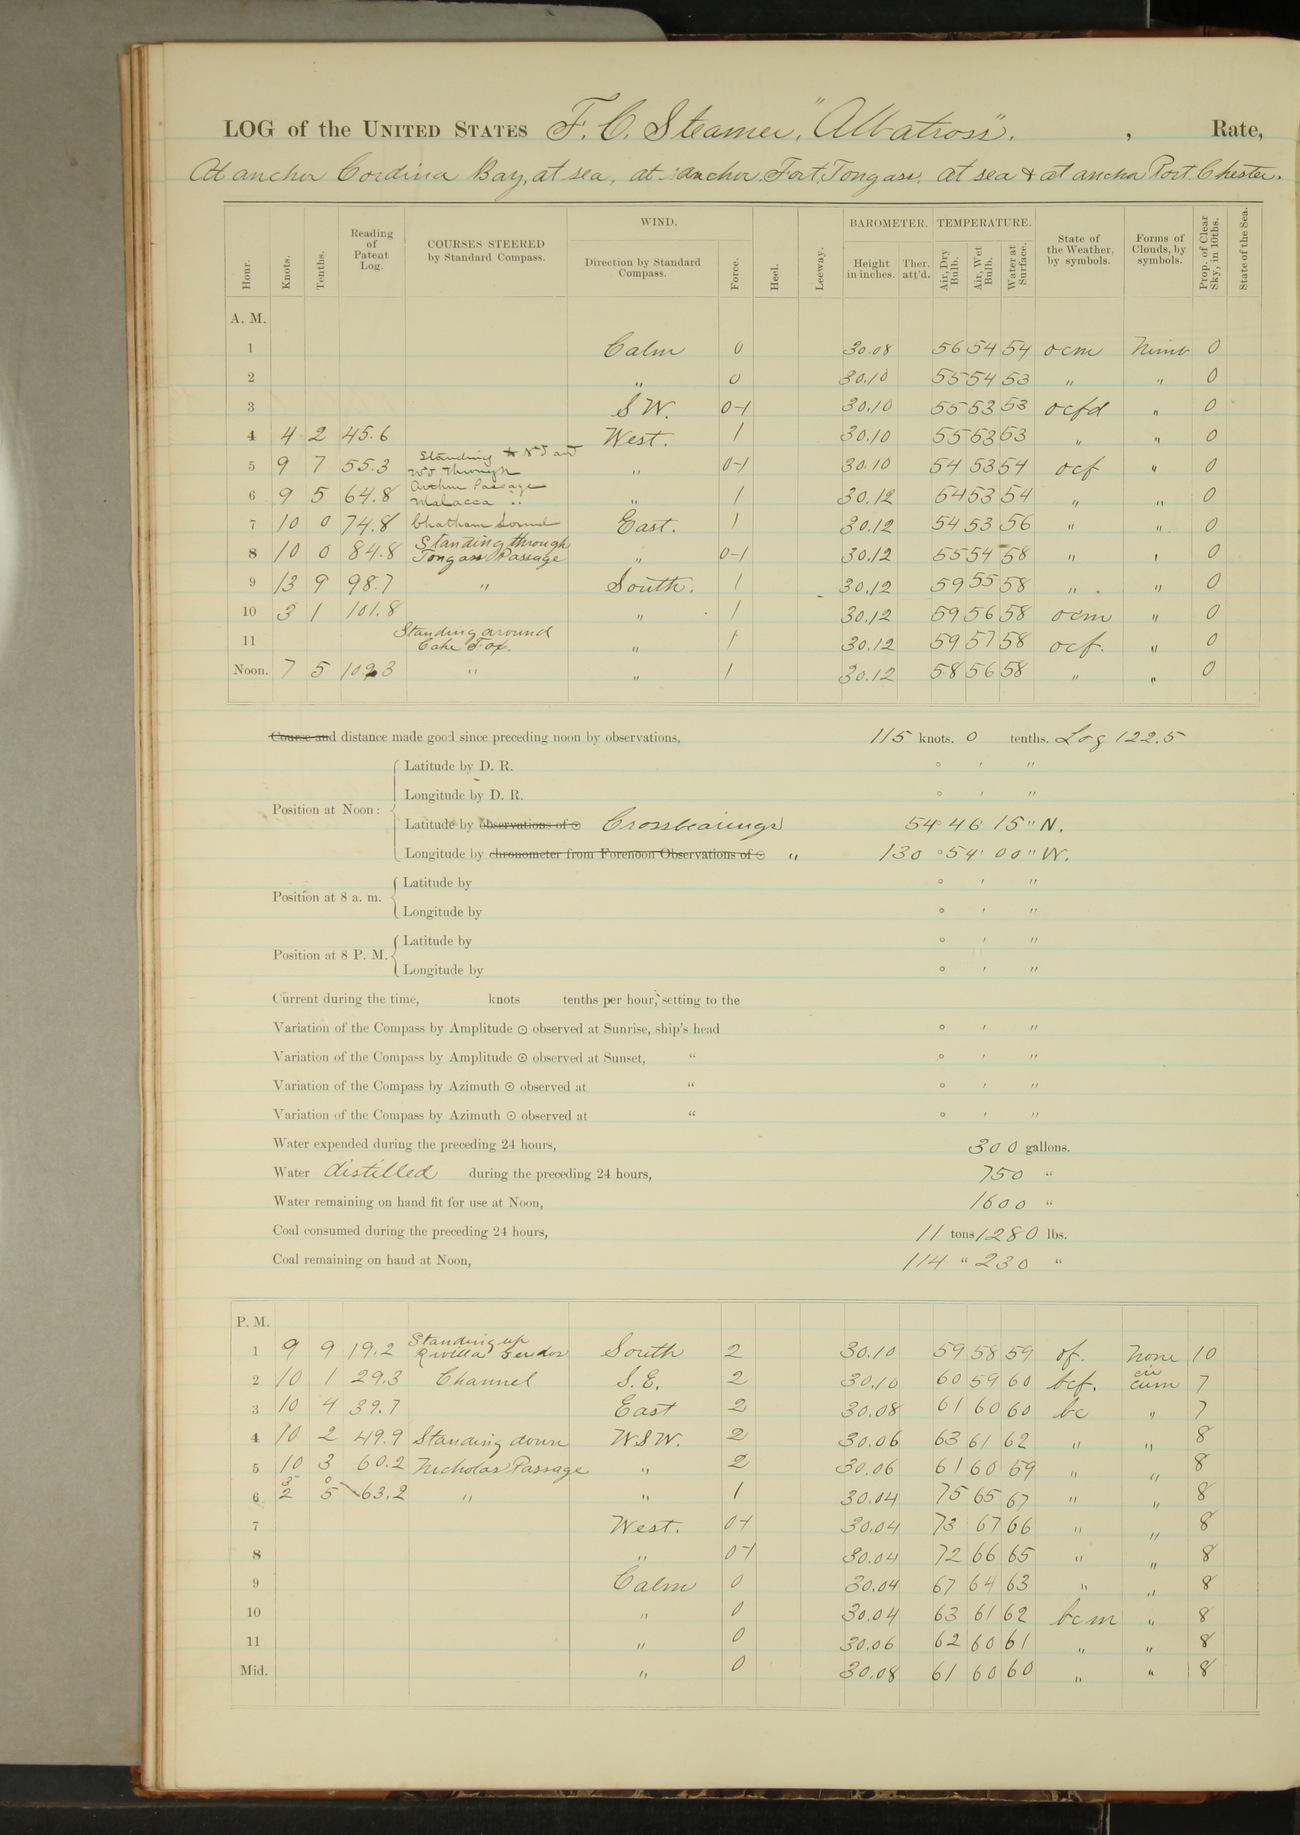 LOG of the UNITED STATES F. C. Steamer "Albatross". , Rate,
At anchor Cordina Bay, at sea, at anchor, Fort Tongass, at sea & at anchor Port Chester.
Hour. Knots. Tenths. Reading of Patent Log. COURSES STEERED by Standard Compass. WIND. Direction by Standard Compass. Force. Heel. Leeway. BAROMETER. Height in inches. Ther. att'd. TEMPERATURE. Air, Dry Bulb. Air, Wet Bulb. Water at Surface. State of the Weather, by symbols. Forms of Clouds, by symbols. Prop. of Clear Sky, in 10ths. State of the Sea.
A. M.
1 Calm 0 30.08 56 54 54 ocm Nimb 0
2 " 0 30.10 55 54 53 " " 0
3 S W. 0-1 30.10 55 53 53 ocfd " 0
4 4 2 45.6 West. 1 30.10 55 53 53 " " 0
5 9 7 55.3 Standing to Nd and Wd Through " 0-1 30.10 54 53 54 ocf " 0
6 9 5 64.8 Passage Malacca " " 1 30.12 54 53 54 " " 0
7 10 0 74.8 Chatham Sound East. 1 30.12 54 53 56 " " 0
8 10 0 84.8 Standing through Tongass Passage " 0-1 30.12 55 54 58 " " 0
9 13 9 98.7 " South. 1 30.12 59 55 58 " " 0
10 3 1 101.8 " 1 30.12 59 56 58 ocm " 0
11 Standing around Cake Fox. " 1 30.12 59 57 58 ocf. " 0
Noon. 7 5 109.3 " " 1 30.12 58 56 58 " " 0
Course and distance made good since preceding noon by observations, 115 knots. 0 tenths. Log 122.5
Latitude by D. R. ° ' "
Longitude by D. R. ° ' "
Position at Noon:
Latitude by observations of ⊙ Crossbearings 54° 46' 15" N.
Longitude by chronometer from Forenoon Observations of ⊙ " 130° 54' 00" W.
Position at 8 a. m. Latitude by ° ' "
Longitude by ° ' "
Position at 8 P. M. Latitude by ° ' "
Longitude by ° ' "
Current during the time, knots tenths per hour, setting to the
Variation of the Compass by Amplitude ⊙ observed at Sunrise, ship's head ° ' "
Variation of the Compass by Amplitude ⊙ observed at Sunset, " ° ' "
Variation of the Compass by Azimuth ⊙ observed at " ° ' "
Variation of the Compass by Azimuth ⊙ observed at " ° ' "
Water expended during the preceding 24 hours, 300 gallons.
Water distilled during the preceding 24 hours, 750 "
Water remaining on hand fit for use at Noon, 1600 "
Coal consumed during the preceding 24 hours, 11 tons 1280 lbs.
Coal remaining on hand at Noon, 114 " 230 "
P. M.
1 9 9 19.2 Standing up Revilla Gendos South 2 30.10 59 58 59 of. None 10
2 10 1 29.3 Channel S. E. 2 30.10 60 59 60 bcf. cir cum 7
3 10 4 39.7 East 2 30.08 61 60 60 bc " 7
4 10 2 49.9 Standing down W S W. 2 30.06 63 61 62 " " 8
5 10 3 60.2 Nicholas Passage " 2 30.06 61 60 59 " " 8
6 3 0 2 5 63.2 " " 1 30.04 75 65 67 " " 8
7 West. 0-1 30.04 73 67 66 " " 8
8 " 0-1 30.04 72 66 65 " " 8
9 Calm 0 30.04 67 64 63 " " 8
10 " 0 30.04 63 61 62 bcm " 8
11 " 0 30.06 62 60 61 " " 8
Mid. " 0 30.08 61 60 60 " " 8